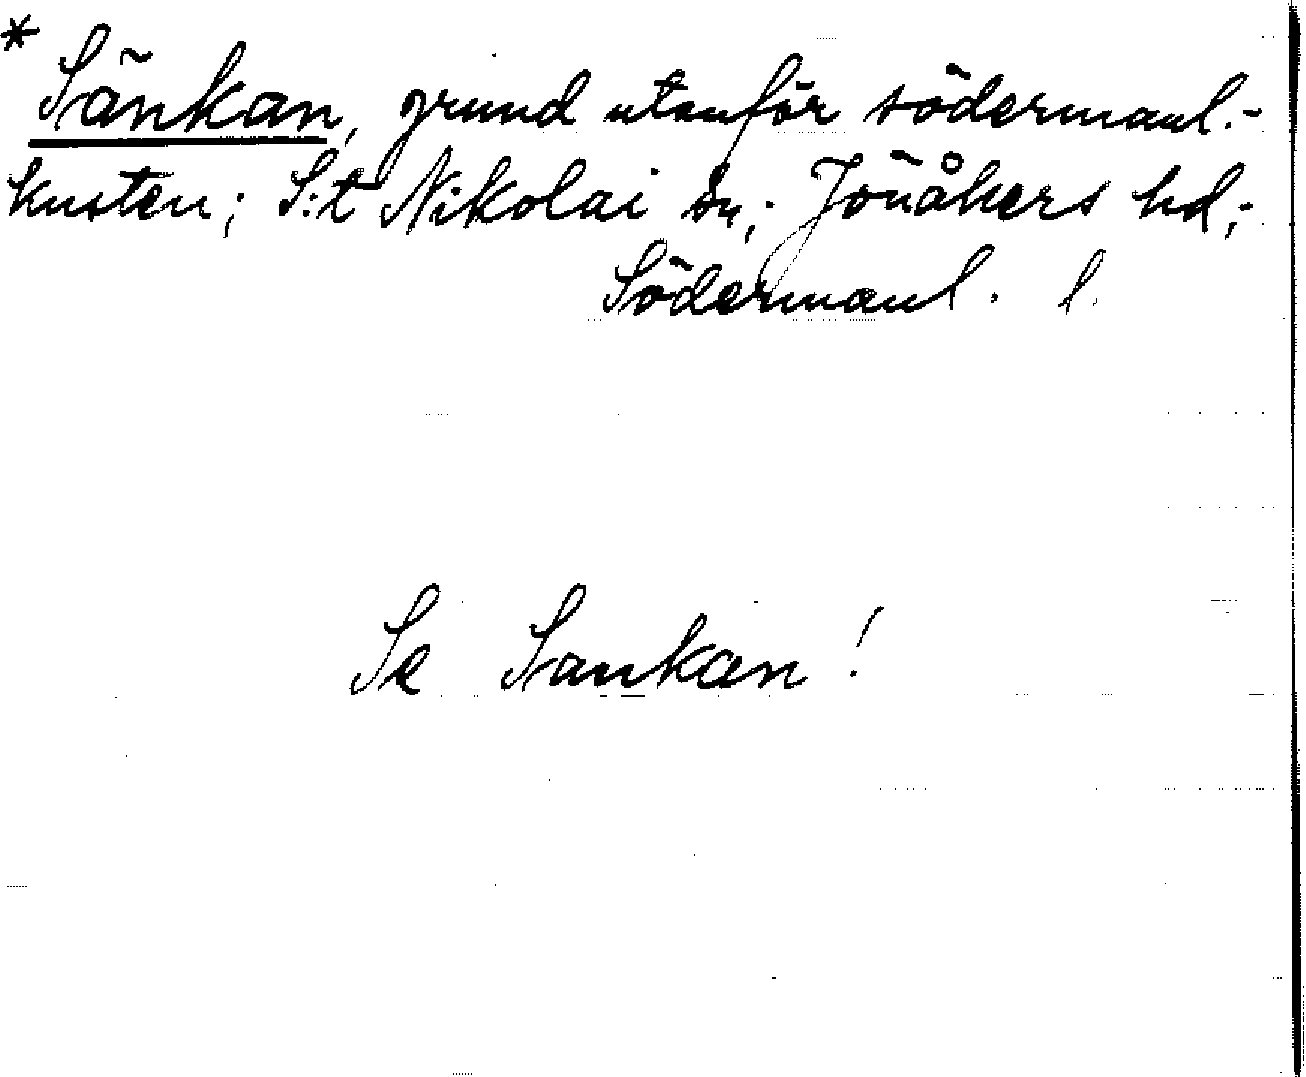 * Sänkan, grund utanför södermanl.-
kusten; S:t Nikolai sn; Jönåkers hd,
Södermanl. l.
Se Sankan!